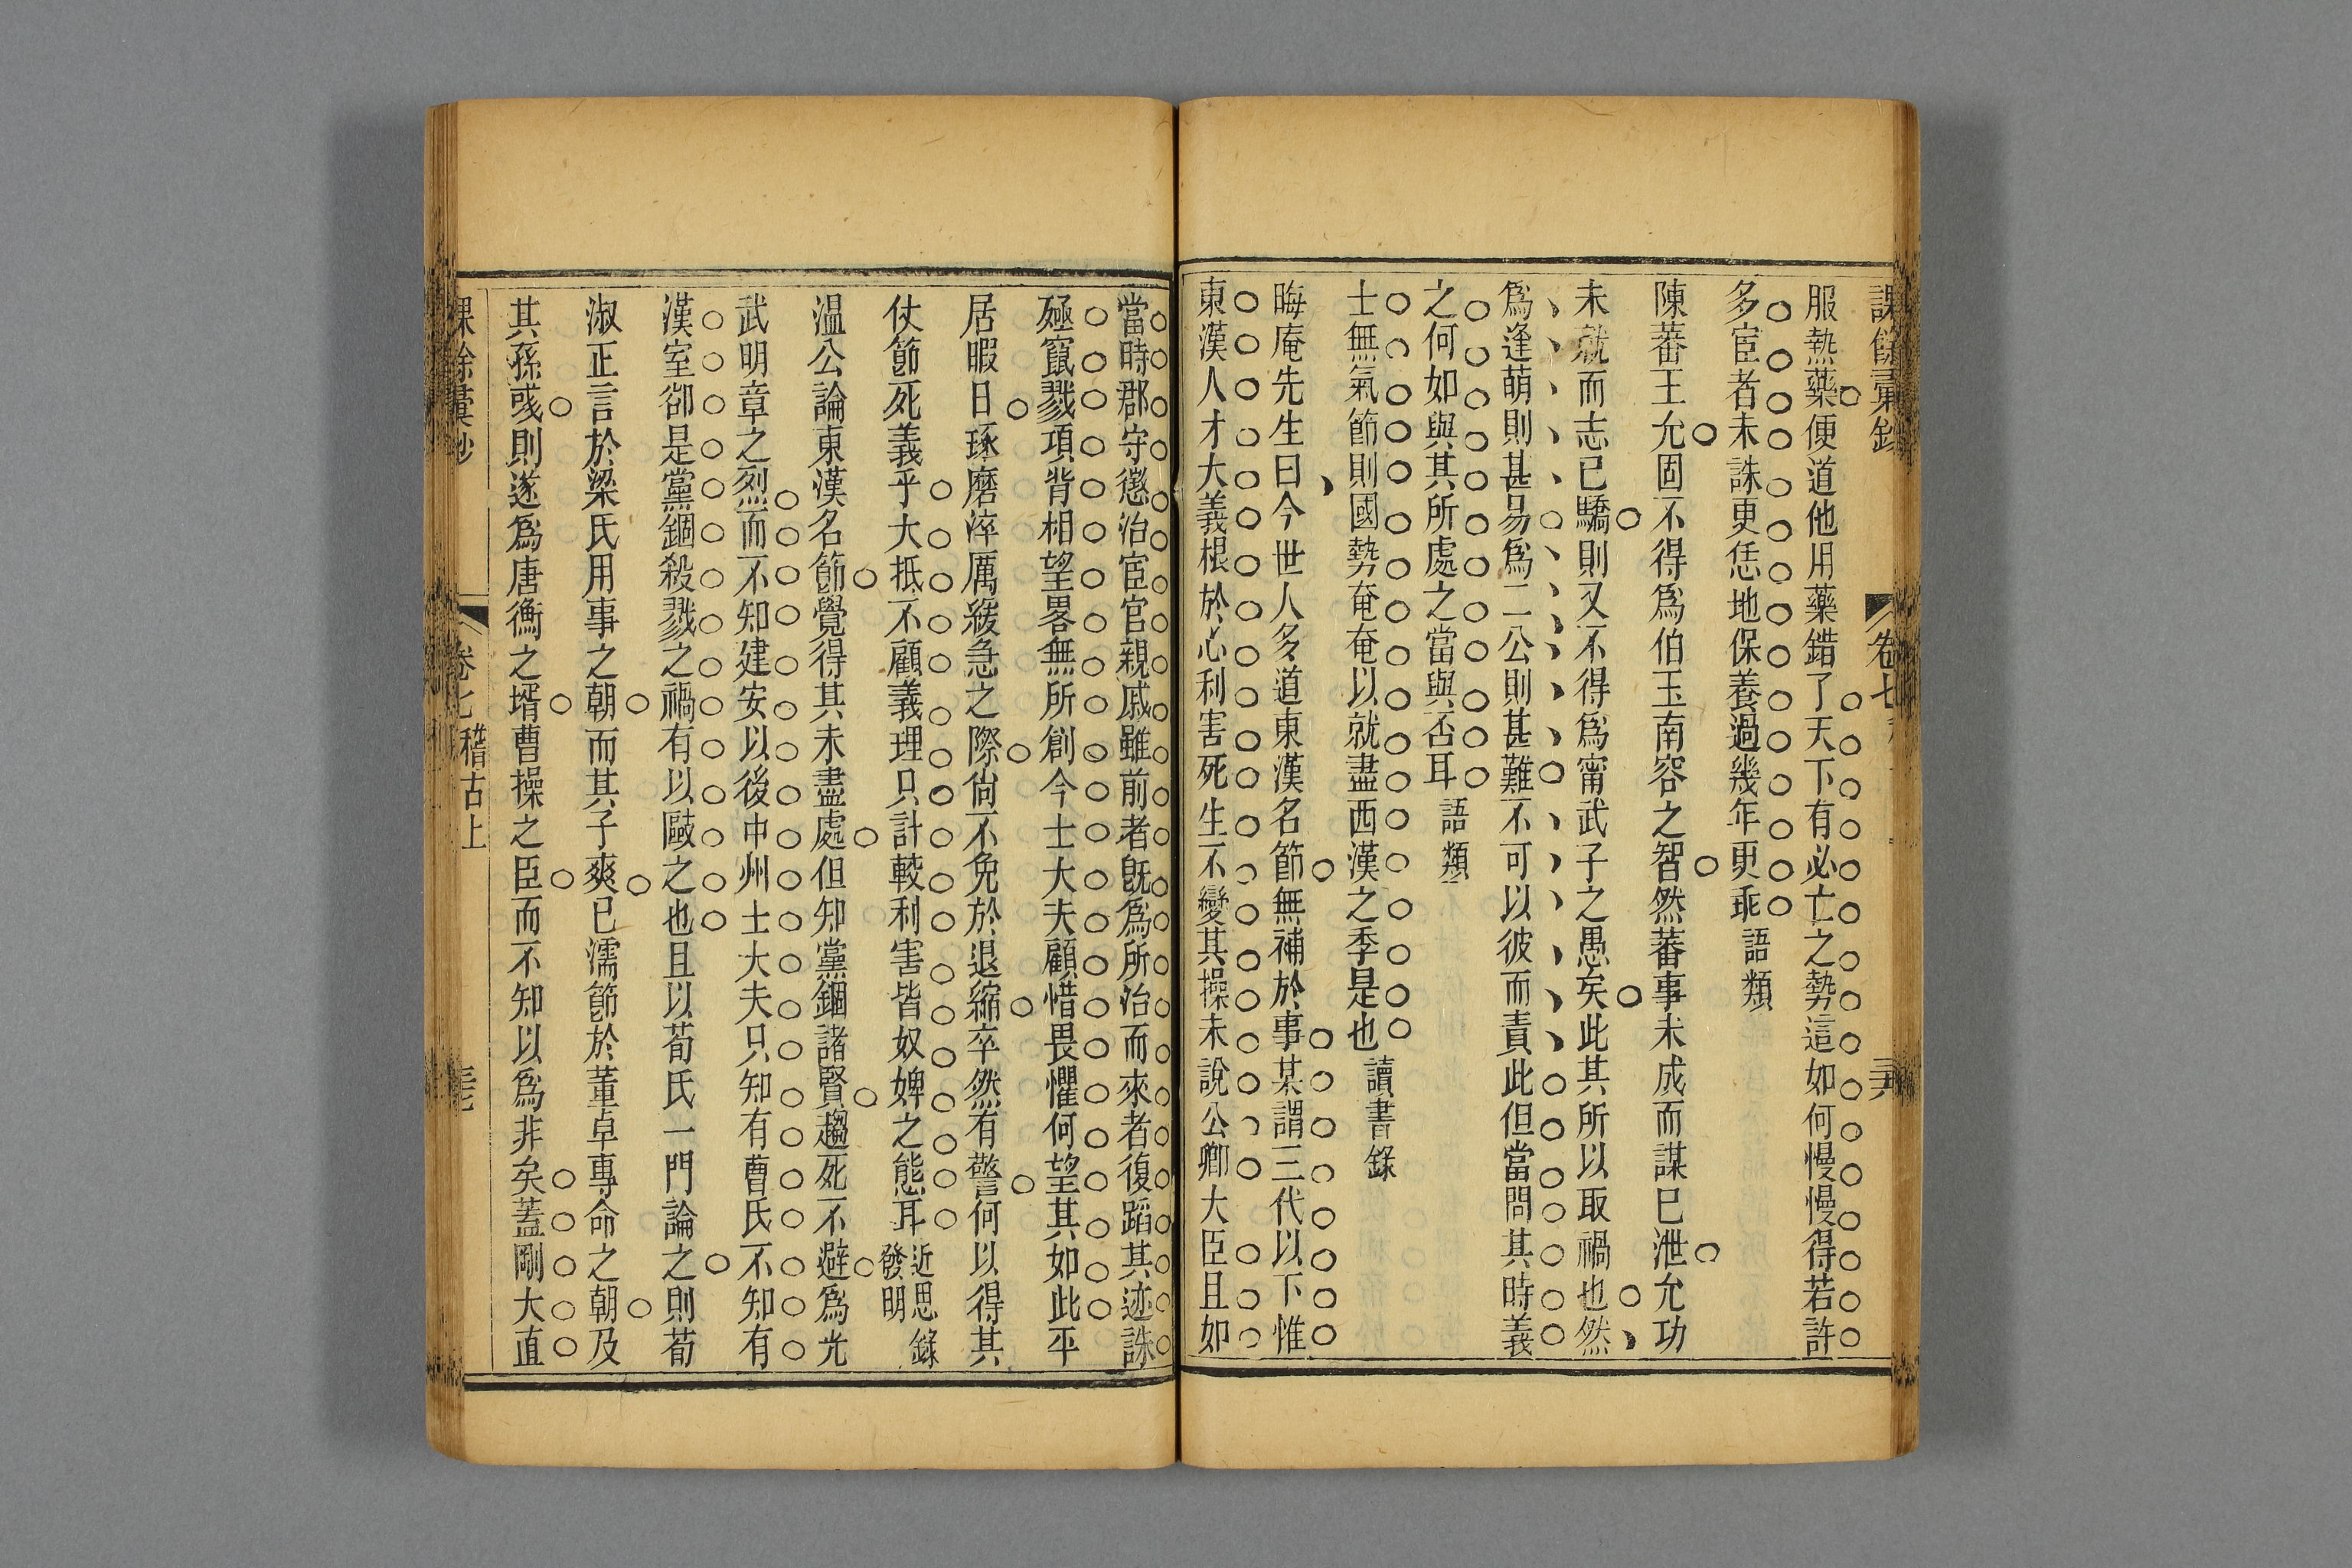 課餘彙鈔 卷七
服熱藥便道他用藥錯了天下有必亡之勢這如何慢慢得若許
多宦者未誅更恁地保養過幾年更乖 語類
陳蕃王允固不得爲伯玉南容之智然蕃事未成而謀已泄允功
未就而志已驕則又不得爲甯武子之愚矣此其所以取禍也然
爲逢萌則甚易爲二公則甚難不可以彼而責此但當問其時義
之何如與其所處之當與否耳 語類
士無氣節則國勢奄奄以就盡西漢之季是也 讀書錄
晦庵先生曰今世人多道東漢名節無補於事某謂三代以下惟
東漢人才大義根於心利害死生不變其操未說公卿大臣且如
當時郡守懲治宦官親戚雖前者旣爲所治而來者復蹈其迹誅
殛竄戮項背相望畧無所創今士大夫顧惜畏懼何望其如此平
居暇日琢磨淬厲緩急之際尙不免於退縮卒然有警何以得其
仗節死義乎大抵不顧義理只計較利害皆奴婢之態耳 近思錄發明
溫公論東漢名節覺得其未盡處但知黨錮諸賢趨死不避爲光
武明章之烈而不知建安以後中州士大夫只知有曹氏不知有
漢室卻是黨錮殺戮之禍有以敺之也且以荀氏一門論之則荀
淑正言於梁氏用事之朝而其子爽已濡節於董卓專命之朝及
其孫彧則遂爲唐衡之壻曹操之臣而不知以爲非矣蓋剛大直
課餘彙鈔 卷七 稽古上